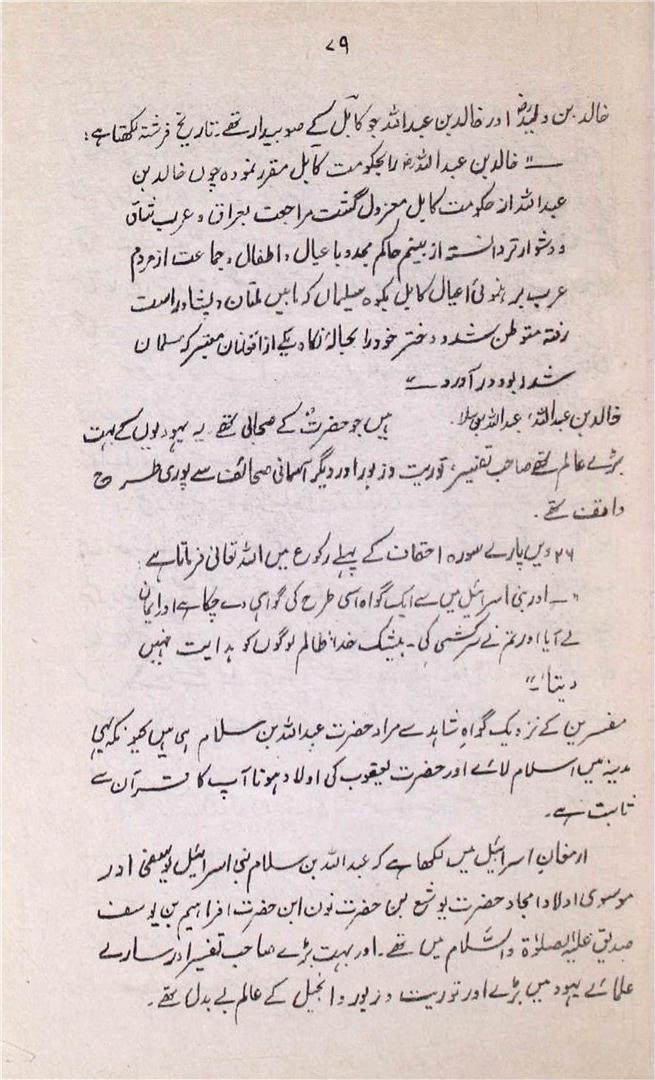 ۷۹
خالد بن ولیدؓ اور خالد بن عبداللہ جو کابل کے صوبیدار تھے۔ تاریخ فرشتہ لکھتا ہے؛
"خالد بن عبداللہ را بحکومت کابل مقرر نمودہ چوں خالد بن
عبداللہ از حکومت کابل معزول گشت مراجعت بعراق و عرب شاق
و دشوار تر دانستہ از بیم حاکم مجدد با عیال و اطفال و جماعت از مردم
عرب بر ہنمونی اعیال کابل بکوہ سلیمان کہ مابین ملتان و پشاور است
رفتہ متوطن شد و دختر خود را بحبالۂ نکاح یکے از افغنان معتبر کہ مسلمان
شدہ بود در آورد۔"
خالد بن عبداللہ، عبداللہ بن سلام ہیں جو حضرتؐ کے صحابی تھے۔ یہ یہودیوں کے بہت
بڑے عالم تھے صاحب تفسیر، توریت و زبور اور دیگر آسمانی صحائف سے پوری طرح
واقف تھے۔
۲۶ ویں پارے سورہ احقاف کے پہلے رکوع میں اللہ تعالیٰ فرماتا ہے:
"۔ اور بنی اسرائیل میں سے ایک گواہ اسی طرح کی گواہی دے چکا ہے اور ایمان
لے آیا اور تم نے سرکشی کی۔ بیشک خدا ظالم لوگوں کو ہدایت نہیں
دیتا۔"
مفسرین کے نزدیک گواہ شاہد سے مراد حضرت عبداللہ بن سلام ہی ہیں کیونکہ یہی
مدینہ میں اسلام لائے اور حضرت یعقوب کی اولاد ہونا آپ کا قرآن سے
ثابت ہے۔
ارمغان اسرائیل میں لکھا ہے کہ عبداللہ بن سلام بنی اسرائیل یوسفی اور
موسوی اولاد امجاد حضرت یوشع بن حضرت نون ابن حضرت افراہیم بن یوسف
صدیق علیہ الصلوٰۃ والسّلام میں تھے۔ اور بہت بڑے صاحب تفسیر اور سارے
علمائے یہود میں بڑے اور توریت و زبور و انجیل کے عالم بے بدل تھے۔